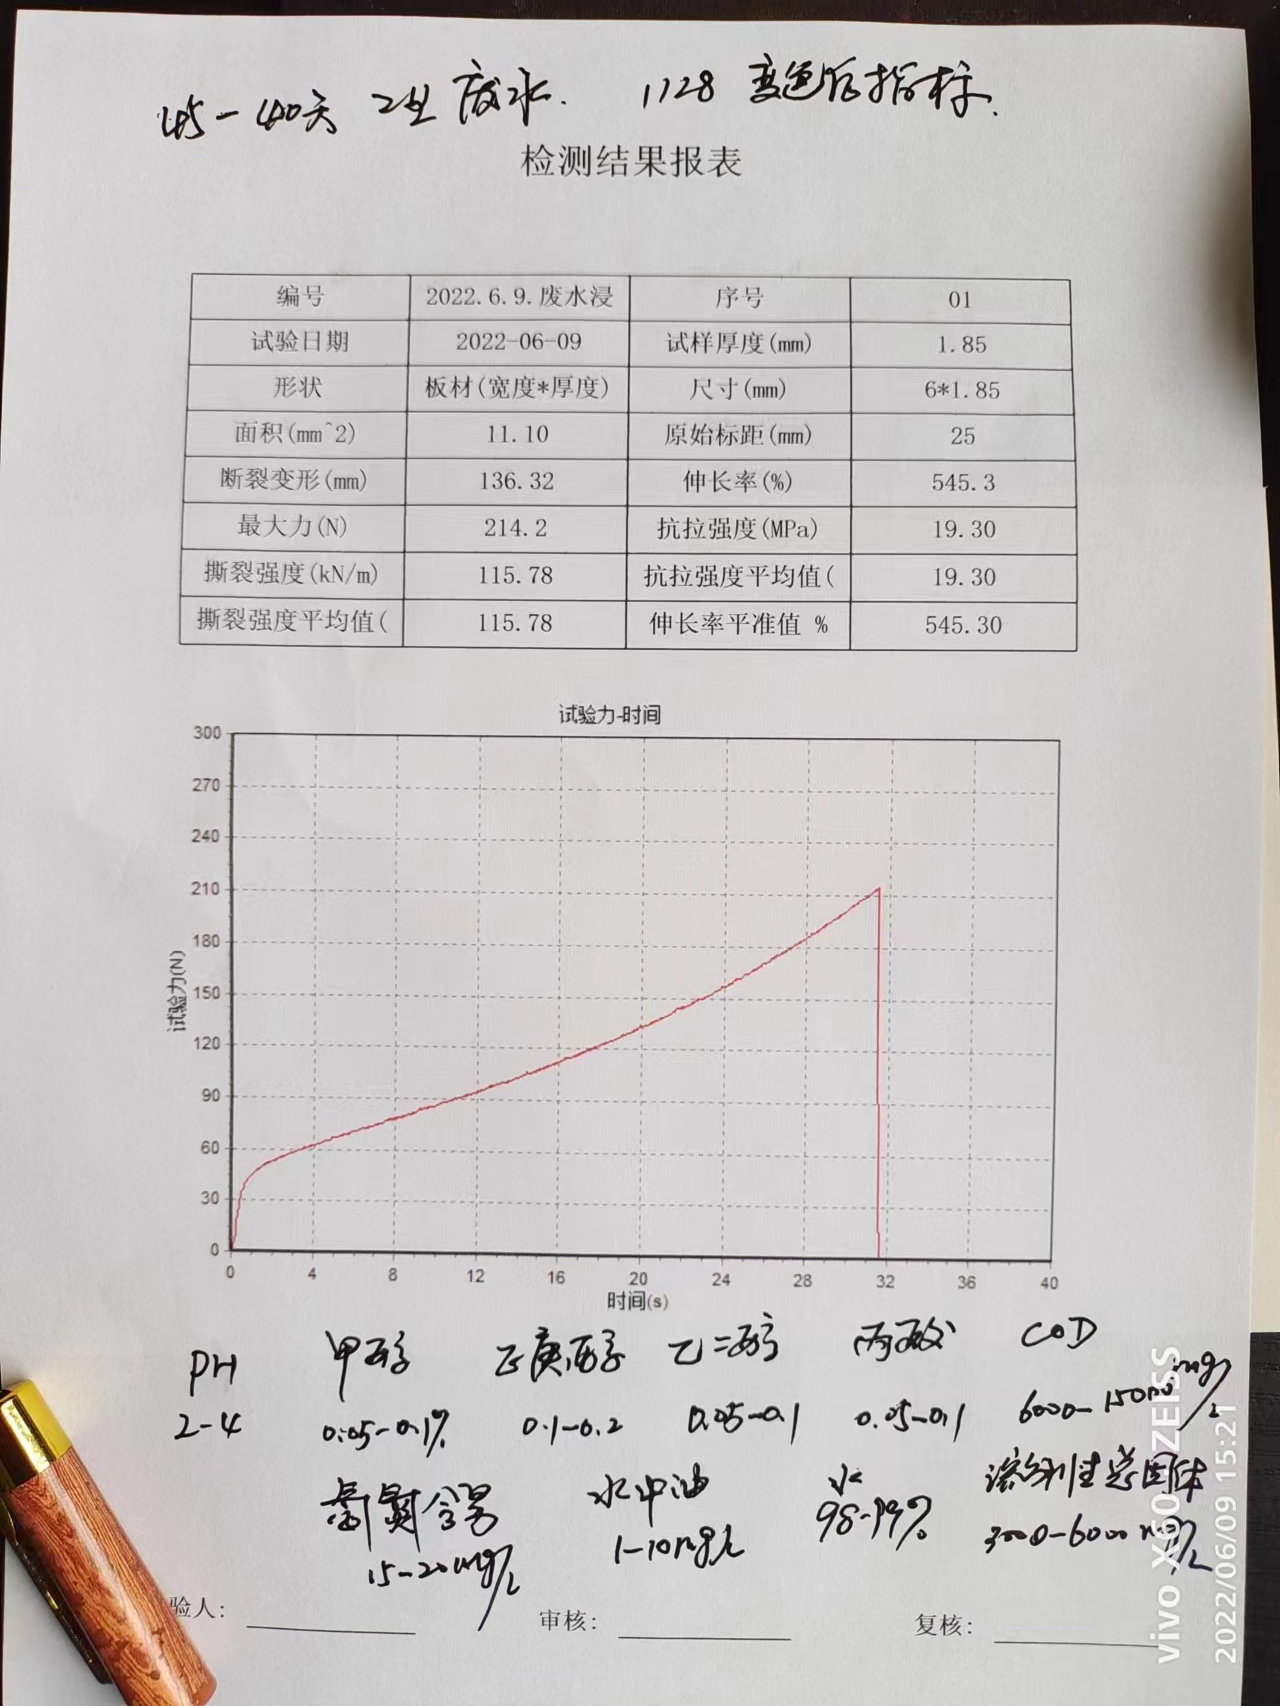 45-40天 工业废水. 1128 变色后指标.
检测结果报表
编号 2022.6.9.废水浸 序号 01
试验日期 2022-06-09 试样厚度(mm) 1.85
形状 板材(宽度*厚度) 尺寸(mm) 6*1.85
面积(mm^2) 11.10 原始标距(mm) 25
断裂变形(mm) 136.32 伸长率(%) 545.3
最大力(N) 214.2 抗拉强度(MPa) 19.30
撕裂强度(kN/m) 115.78 抗拉强度平均值( 19.30
撕裂强度平均值( 115.78 伸长率平准值 % 545.30
试验力-时间
300
270
240
210
180
150
120
90
60
30
0
试验力(N)
0 4 8 12 16 20 24 28 32 36 40
时间(s)
PH 甲醇 正庚醇 乙二醇 丙酸 COD
2-4 0.05-0.1% 0.1-0.2 0.05-0.1 0.05-0.1 6000-15000mg/L
含量 水中油 水 溶解性总固体
15-20mg/L 1-10mg/L 98-99% 3000-6000mg/L
验人: 审核: 复核:
vivo X60 ZEISS
2022/06/09 15:21